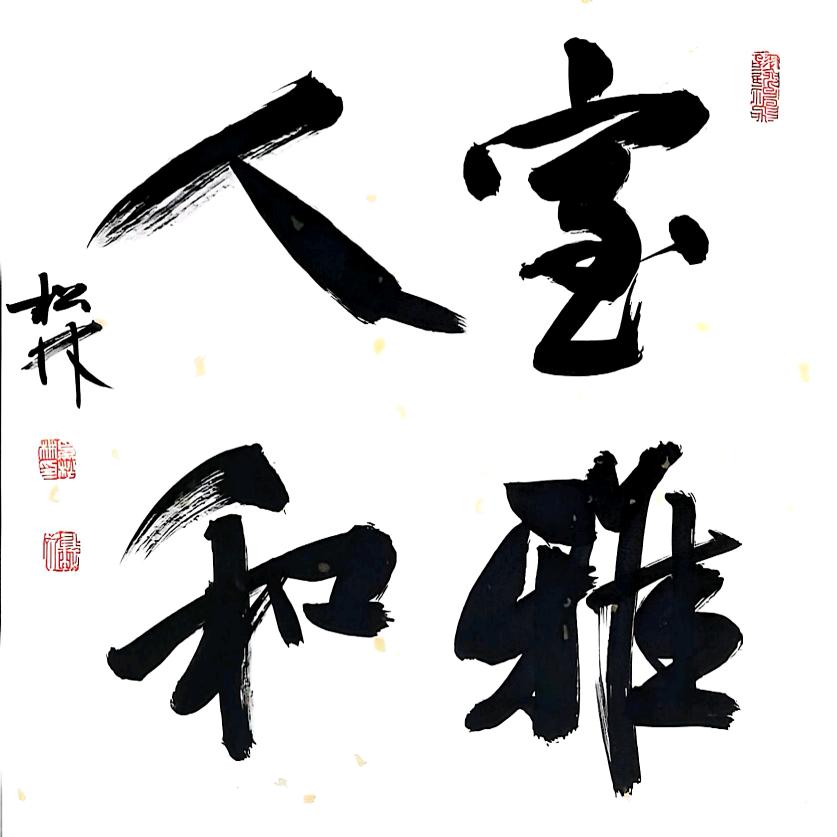 室雅
人和
松林